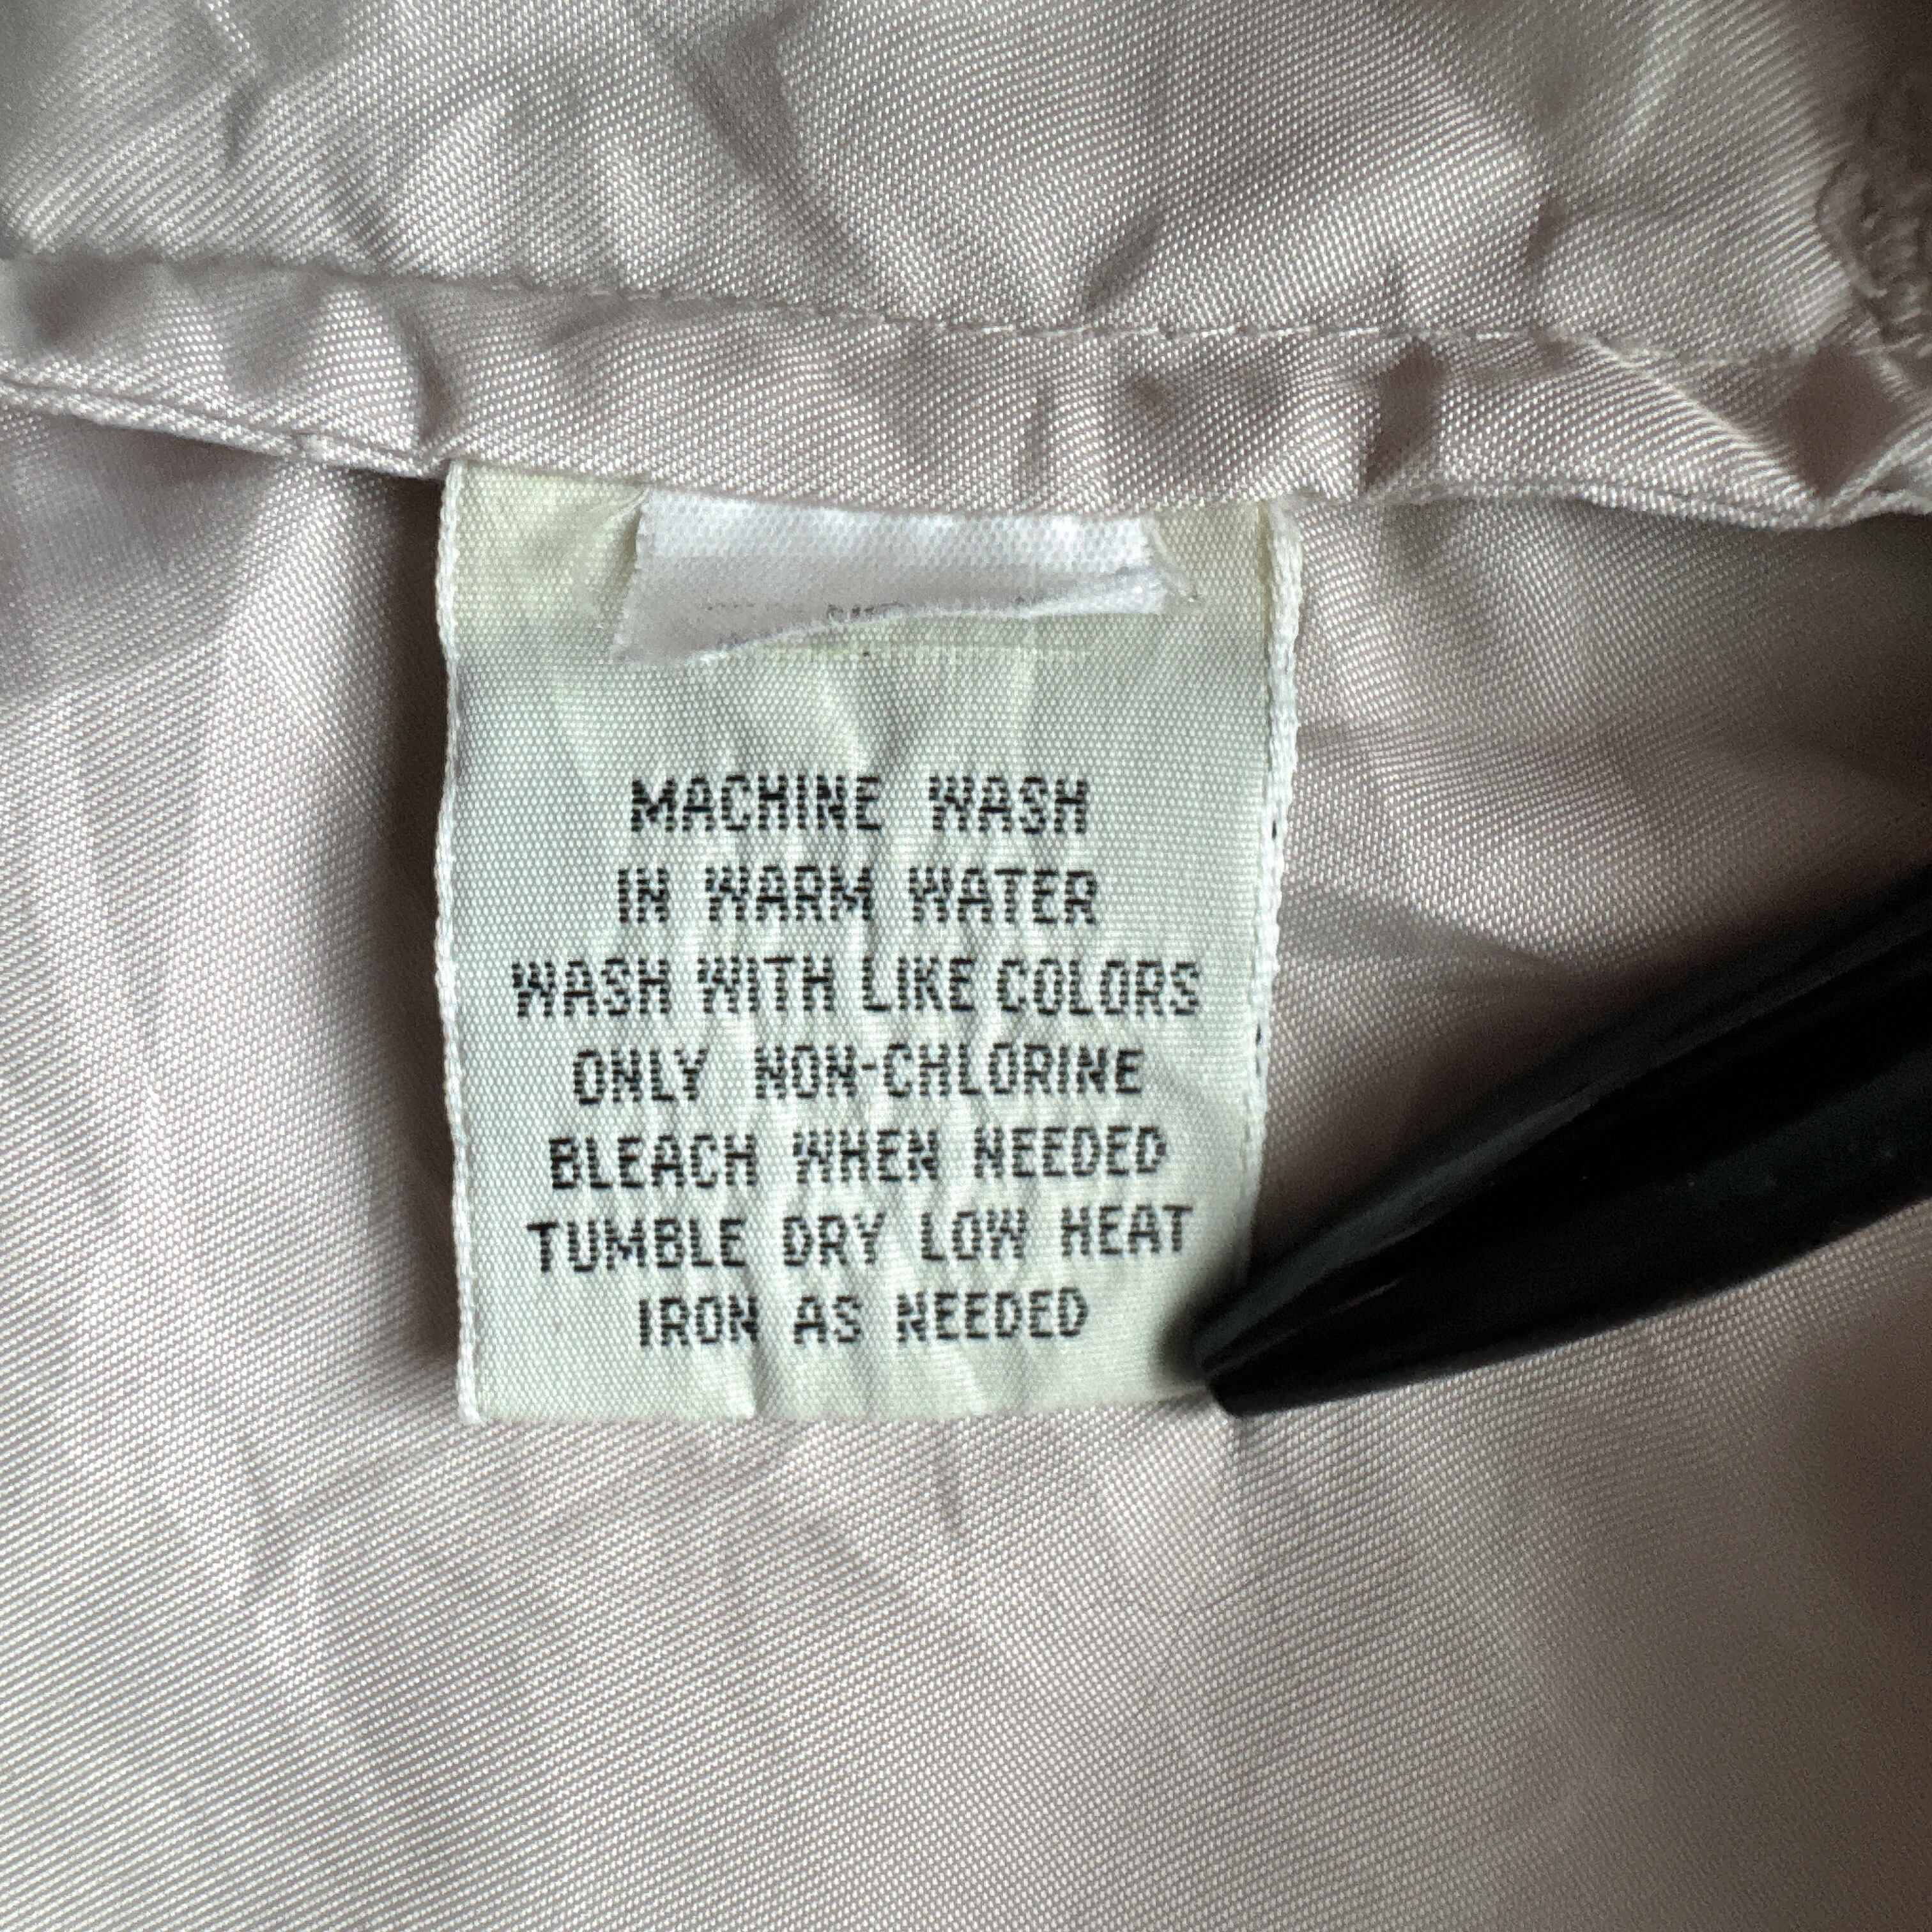 MACHINE WASH
IN WARM WATER
WASH WITH LIKE COLORS
ONLY NON-CHLORINE
BLEACH WHEN NEEDED
TUMBLE DRY LOW HEAT
IRON AS NEEDED